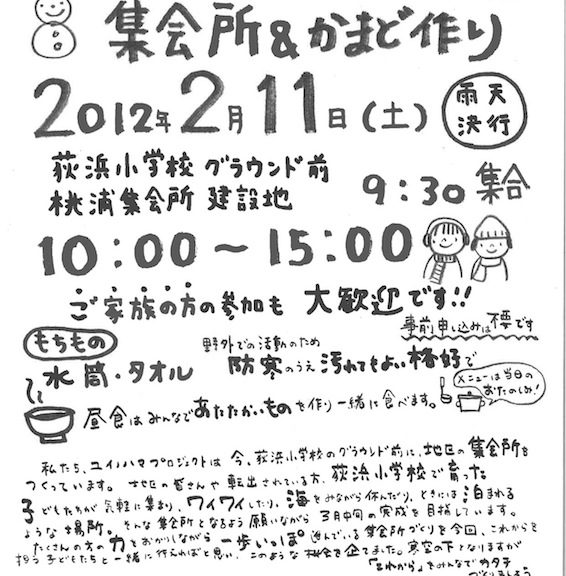 集会所&かまど作り
2012年2月11日(土)
雨天
決行
荻浜小学校 グラウンド前
桃浦集会所 建設地
9:30 集合
10:00〜15:00
ご家族の方の参加も 大歓迎です!!
事前申し込みは不要です
もちもの
水筒・タオル
野外での活動のため
防寒のうえ汚れてもよい格好で
メニューは当日の
おたのしみ!
昼食はみんなであたたかいものを作り一緒に食べます。
私たち、ユイノハマプロジェクトは 今、荻浜小学校のグラウンド前に、地区の集会所を
つくっています。地区の皆さんや転出されている方、荻浜小学校で育った
子どもたちが気軽に集まり、ワイワイしたり、海をみながら休んだり、ときには泊まれる
ような場所。そんな集会所となるよう願いながら 3月中旬の完成を目指しています。
たくさんの方の力をおかりしながら 一歩いっぽ 進んでいる集会所づくりを今回、これからを
担う子どもたちと一緒に行えればと思い、このような機会を企てました。寒空の下となりますが
「これから」をみんなでカタチ
づくりましょう